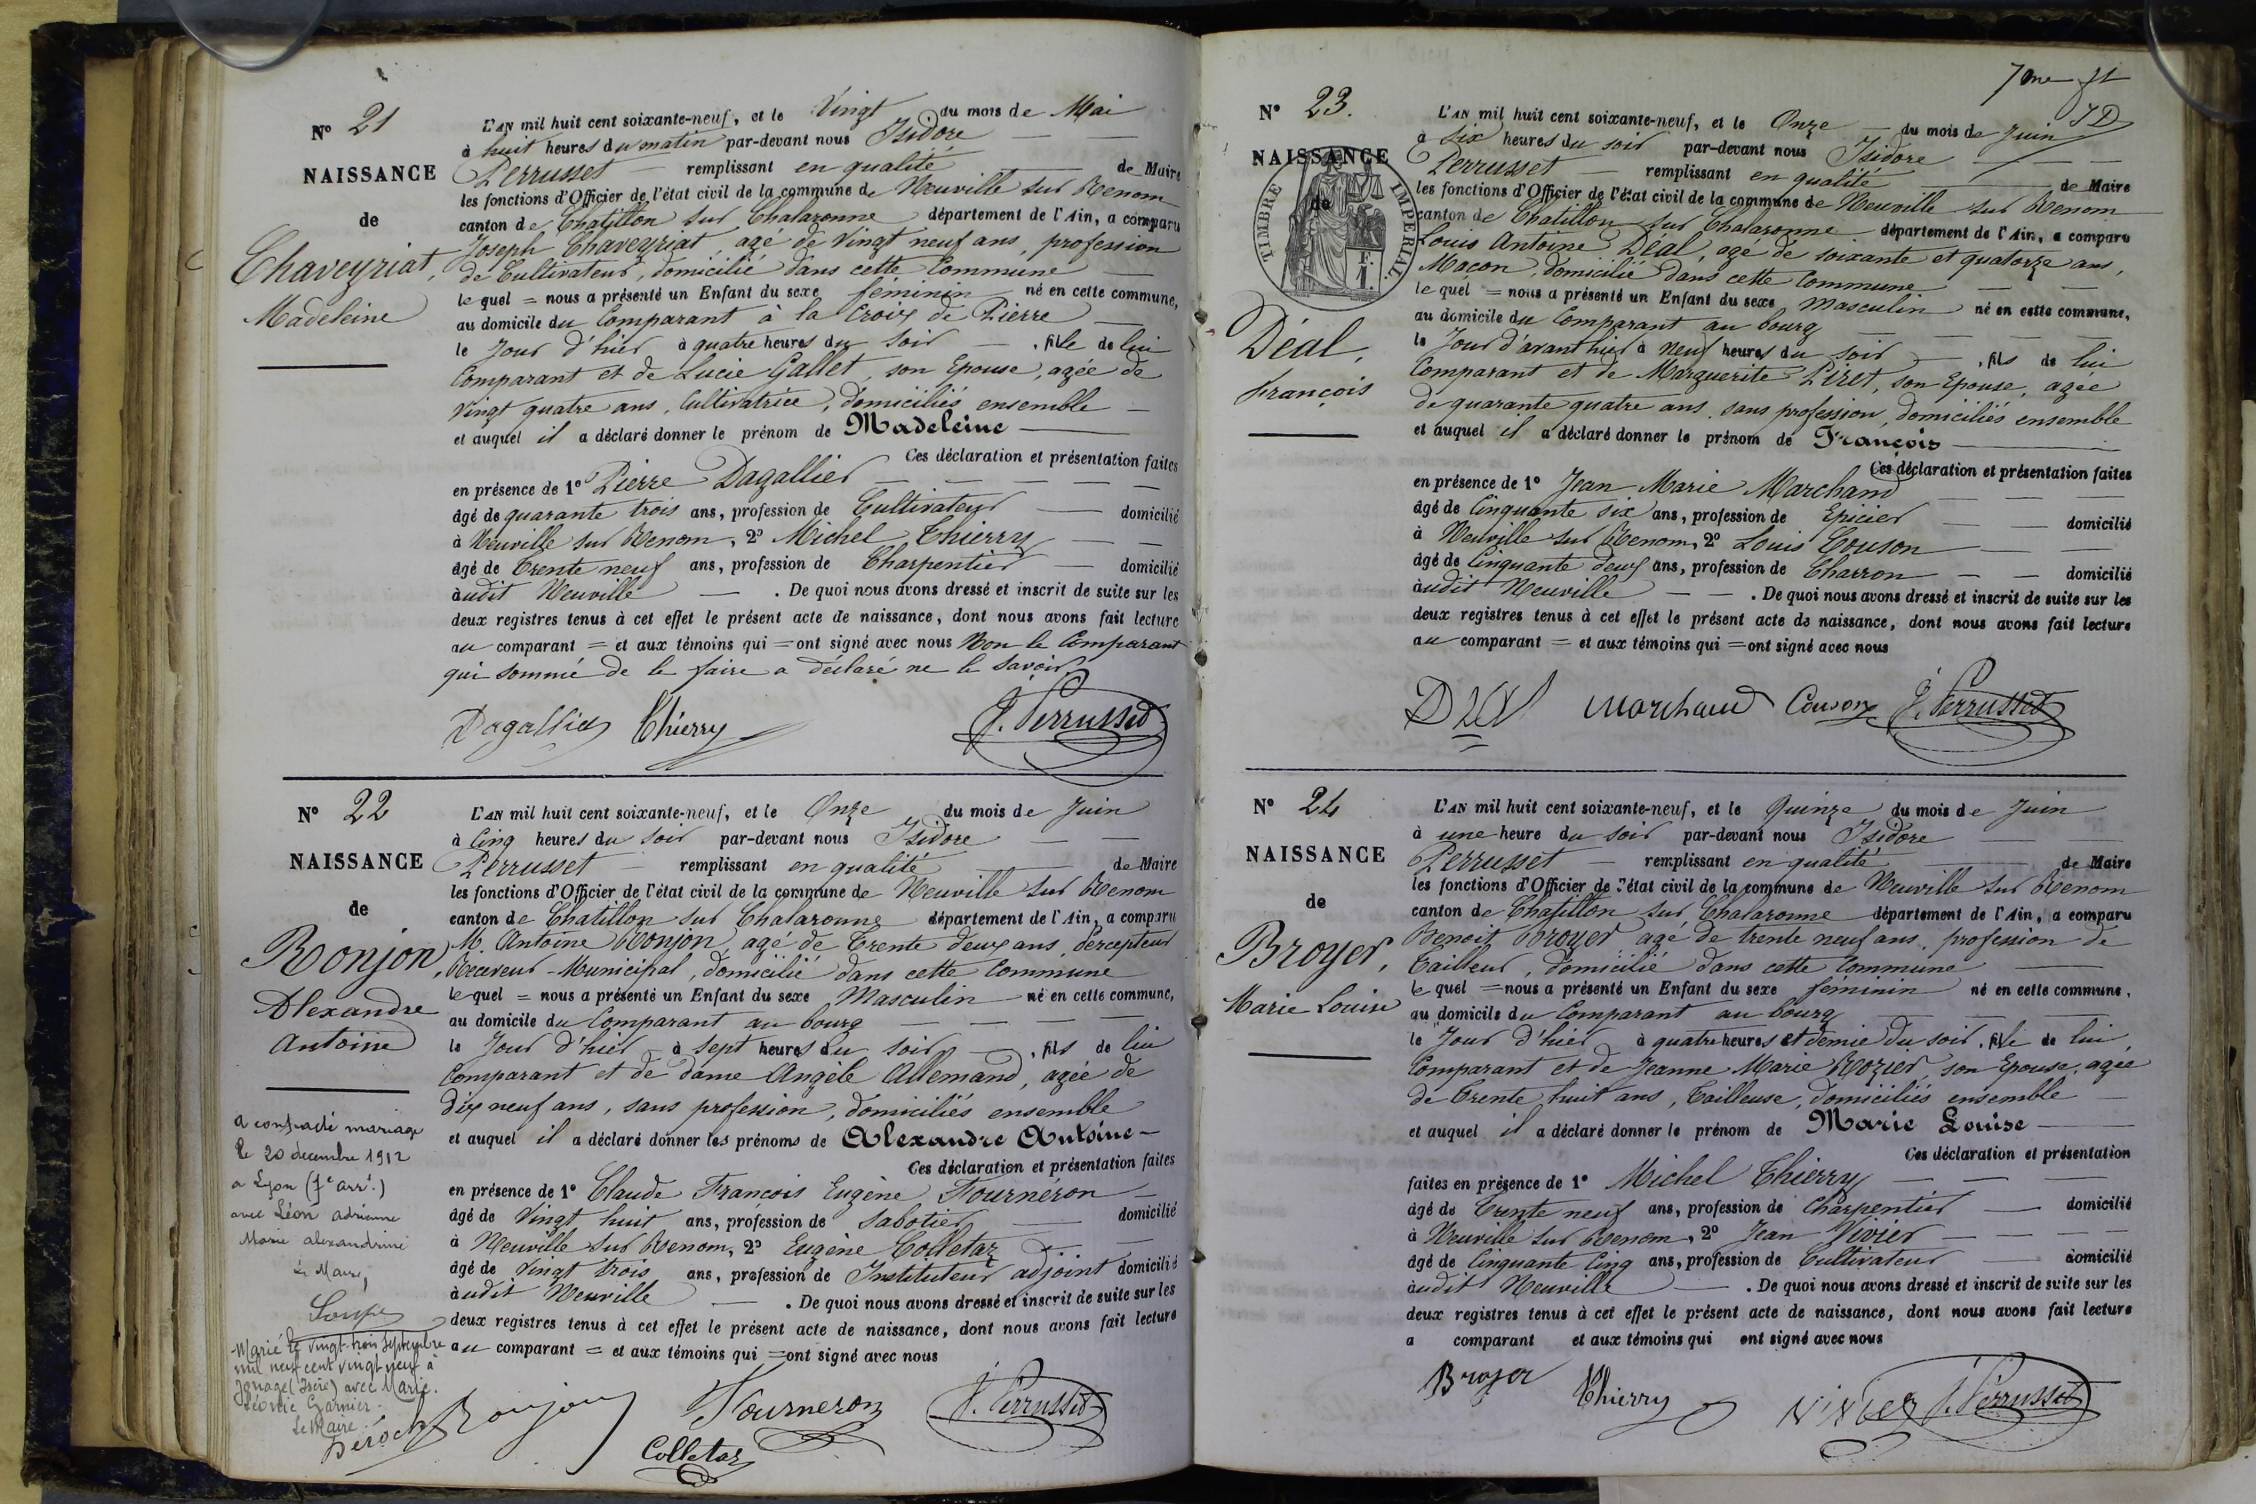 N° 21
NAISSANCE
de
Chaveyriat,
Madeleine
L'AN mil huit cent soixante-neuf, et le Vingt du mois de Mai
à huit heures du matin par-devant nous Isidore
Perrusset remplissant en qualité de Maire
les fonctions d'Officier de l'état civil de la commune de Neuville sur Renom
canton de Chatillon sur Chalaronne département de l'Ain, a comparu
Joseph Chaveyriat, agé de Vingt neuf ans, profession
de Cultivateur, domicilié dans cette Commune
le quel = nous a présenté un Enfant du sexe féminin né en cette commune,
au domicile du Comparant à la Croix de Pierre
le Jour d'hier à quatre heures du soir, fille de lui
Comparant et de Lucie Gallet, son Epouse, agée de
Vingt quatre ans, Cultivatrice, domiciliés ensemble
et auquel il a déclaré donner le prénom de Madeleine
Ces déclaration et présentation faites
en présence de 1° Pierre Dagallier
âgé de quarante trois ans, profession de Cultivateur domicilié
à Neuville sur Renom, 2° Michel Thierry
âgé de Trente neuf ans, profession de Charpentier domicilié
audit Neuville. De quoi nous avons dressé et inscrit de suite sur les
deux registres tenus à cet effet le présent acte de naissance, dont nous avons fait lecture
au comparant = et aux témoins qui = ont signé avec nous Non le Comparant
qui sommé de le faire a déclaré ne le savoir
Dagallier Thierry J. Perrusset
N° 22
NAISSANCE
de
Ronjon,
Alexandre
Antoine
a contracté mariage
le 20 décembre 1912
a Lyon (7e arrt.)
avec Léon adrienne
Marie alexandrine
Le Maire,
Marié le vingt-trois Septembre
mil neuf cent vingt neuf à
Jonage (Isère) avec Marie-
Léonie Garnier.
Le Maire.
L'AN mil huit cent soixante-neuf, et le Onze du mois de Juin
à Cinq heures du soir par-devant nous Isidore
Perrusset remplissant en qualité de Maire
les fonctions d'Officier de l'état civil de la commune de Neuville sur Renom
canton de Chatillon sur Chalaronne département de l'Ain, a comparu
M. Antoine Ronjon, agé de Trente deux ans, Percepteur
Receveur-Municipal, domicilié dans cette Commune
le quel = nous a présenté un Enfant du sexe Masculin né en cette commune,
au domicile du Comparant au bourg
le Jour d'hier à sept heures du soir, fils de lui
Comparant et de dame Angèle Allemand, agée de
dix neuf ans, sans profession, domiciliés ensemble
et auquel il a déclaré donner les prénoms de Alexandre Antoine
Ces déclaration et présentation faites
en présence de 1° Claude François Eugène Fournéron
âgé de Vingt huit ans, profession de Sabotier domicilié
à Neuville sur Renom, 2° Eugène Colletaz
âgé de Vingt trois ans, profession de Instituteur adjoint domicilié
audit Neuville. De quoi nous avons dressé et inscrit de suite sur les
deux registres tenus à cet effet le présent acte de naissance, dont nous avons fait lecture
au comparant = et aux témoins qui = ont signé avec nous
Ronjon Fourneron J. Perrusset
Colletaz
7me ft
JD
N° 23.
NAISSANCE
de
TIMBRE IMPERIAL
F.
1.
Déal,
François
L'AN mil huit cent soixante-neuf, et le Onze du mois de Juin
à six heures du soir par-devant nous Isidore
Perrusset remplissant en qualité de Maire
les fonctions d'Officier de l'état civil de la commune de Neuville sur Renom
canton de Chatillon sur Chalaronne département de l'Ain, a comparu
Louis Antoine Déal, agé de soixante et quatorze ans,
Maçon, domicilié dans cette Commune
le quel = nous a présenté un Enfant du sexe Masculin né en cette commune,
au domicile du Comparant au bourg
le Jour d'avant hier à Neuf heures du soir, fils de lui
Comparant et de Marguerite Piret, son Epouse, agée
de quarante quatre ans, sans profession, domiciliés ensemble
et auquel il a déclaré donner le prénom de François
Ces déclaration et présentation faites
en présence de 1° Jean Marie Marchand
âgé de Cinquante six ans, profession de Epicier domicilié
à Neuville sur Renom, 2° Louis Couson
âgé de Cinquante deux ans, profession de Charron domicilié
audit Neuville. De quoi nous avons dressé et inscrit de suite sur les
deux registres tenus à cet effet le présent acte de naissance, dont nous avons fait lecture
au comparant = et aux témoins qui = ont signé avec nous
Marchand Couson J. Perrusset
N° 24
NAISSANCE
de
Broyer,
Marie Louise
L'AN mil huit cent soixante-neuf, et le Quinze du mois de Juin
à une heure du soir par-devant nous Isidore
Perrusset remplissant en qualité de Maire
les fonctions d'Officier de l'état civil de la commune de Neuville sur Renom
canton de Chatillon sur Chalaronne département de l'Ain, a comparu
Benoit Broyer agé de trente neuf ans, profession de
Tailleur, domicilié dans cette Commune
le quel = nous a présenté un Enfant du sexe féminin né en cette commune,
au domicile du Comparant au bourg
le Jour d'hier à quatre heures et demie du soir, fille de lui
Comparant et de Jeanne Marie Rozier, son Epouse, agée
de Trente huit ans, Tailleuse, domiciliés ensemble
et auquel il a déclaré donner le prénom de Marie Louise
Ces déclaration et présentation
faites en présence de 1° Michel Thierry
âgé de Trente neuf ans, profession de Charpentier domicilié
à Neuville sur Renom, 2° Jean Nivier
âgé de Cinquante Cinq ans, profession de Cultivateur domicilié
audit Neuville. De quoi nous avons dressé et inscrit de suite sur les
deux registres tenus à cet effet le présent acte de naissance, dont nous avons fait lecture
a comparant et aux témoins qui ont signé avec nous
Broyer Thierry Nivier J. Perrusset